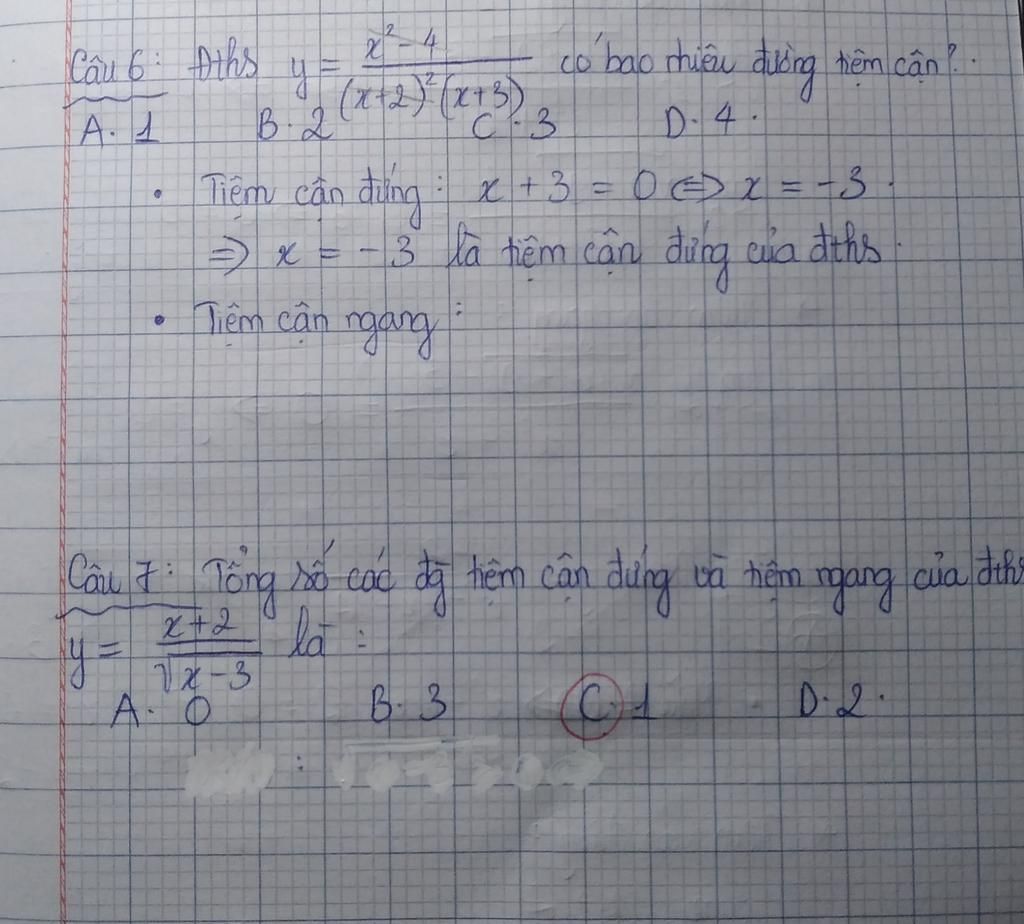 Câu 6: Đths y = \frac{x² - 4}{(x+2)²(x+3)} có bao nhiêu đường tiệm cận?
A. 1 B. 2 C. 3 D. 4.
• Tiệm cận đứng: x + 3 = 0 ⇔ x = -3.
⇒ x = -3 là tiệm cận đứng của đths.
• Tiệm cận ngang:
Câu 7: Tổng số các đg tiệm cận đứng và tiệm ngang của đths
y = \frac{x+2}{\sqrt{x-3}} là:
A. 0 B. 3 C. 1 D. 2.